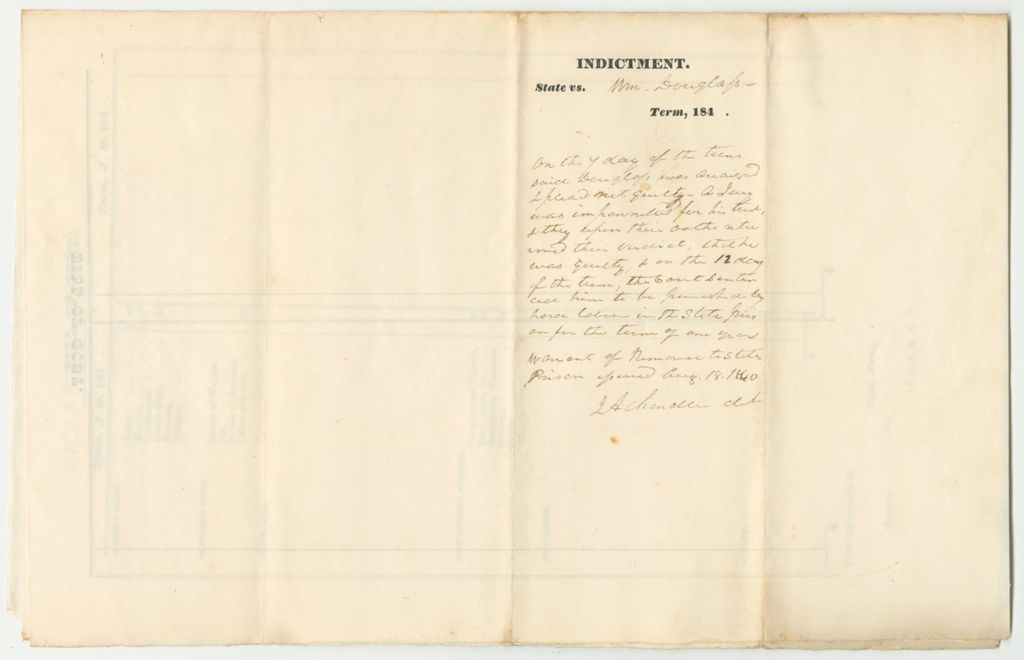 INDICTMENT.
State vs. Wm. Douglass
Term, 184 .
On the 7 day of the term
said Douglass was arraigned
& plead not guilty - A Jury
was impannelled for his trial,
& they upon their oaths retu
rned their verdict, that he
was guilty, & on the 12 day
of the term, the Court senten
ced him to be punished by
hard labor in the State Pris
on for the term of one year
Warrant of Removal to State
Prison issued Aug. 18. 1840
J A Chandler clk